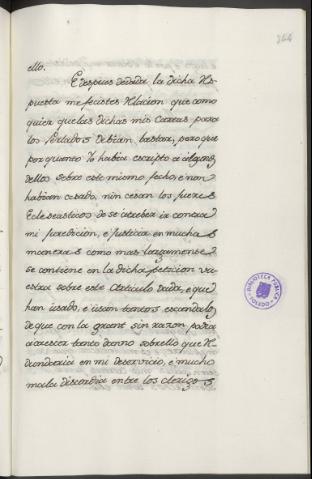 264
ello.
E despues dedada la dicha Res-
puesta me fecistes Relacion que como
quier que las dichas mis Cartas para
los Perlados debian bastar, pero que
por quanto Yo habia escripto a algunos
dellos sobre este mismo fecho, e non
habian cesado, nin cesan los Jueces
Eclesiasticos de se atreber ir contra
mi juredicion, e justicia en muchas
maneras como mas largamente
se contiene en la dicha peticion vu-
estra sobre este Articulo dada, e que
han usado, e usan tantos escandalos
de que con la grant sin razon podria
acrescer tanto danno sobrello que Re-
dundaria en mi deservicio, e mucha
mala discordia entre los clerigos
BIBLIOTECA PUBLICA